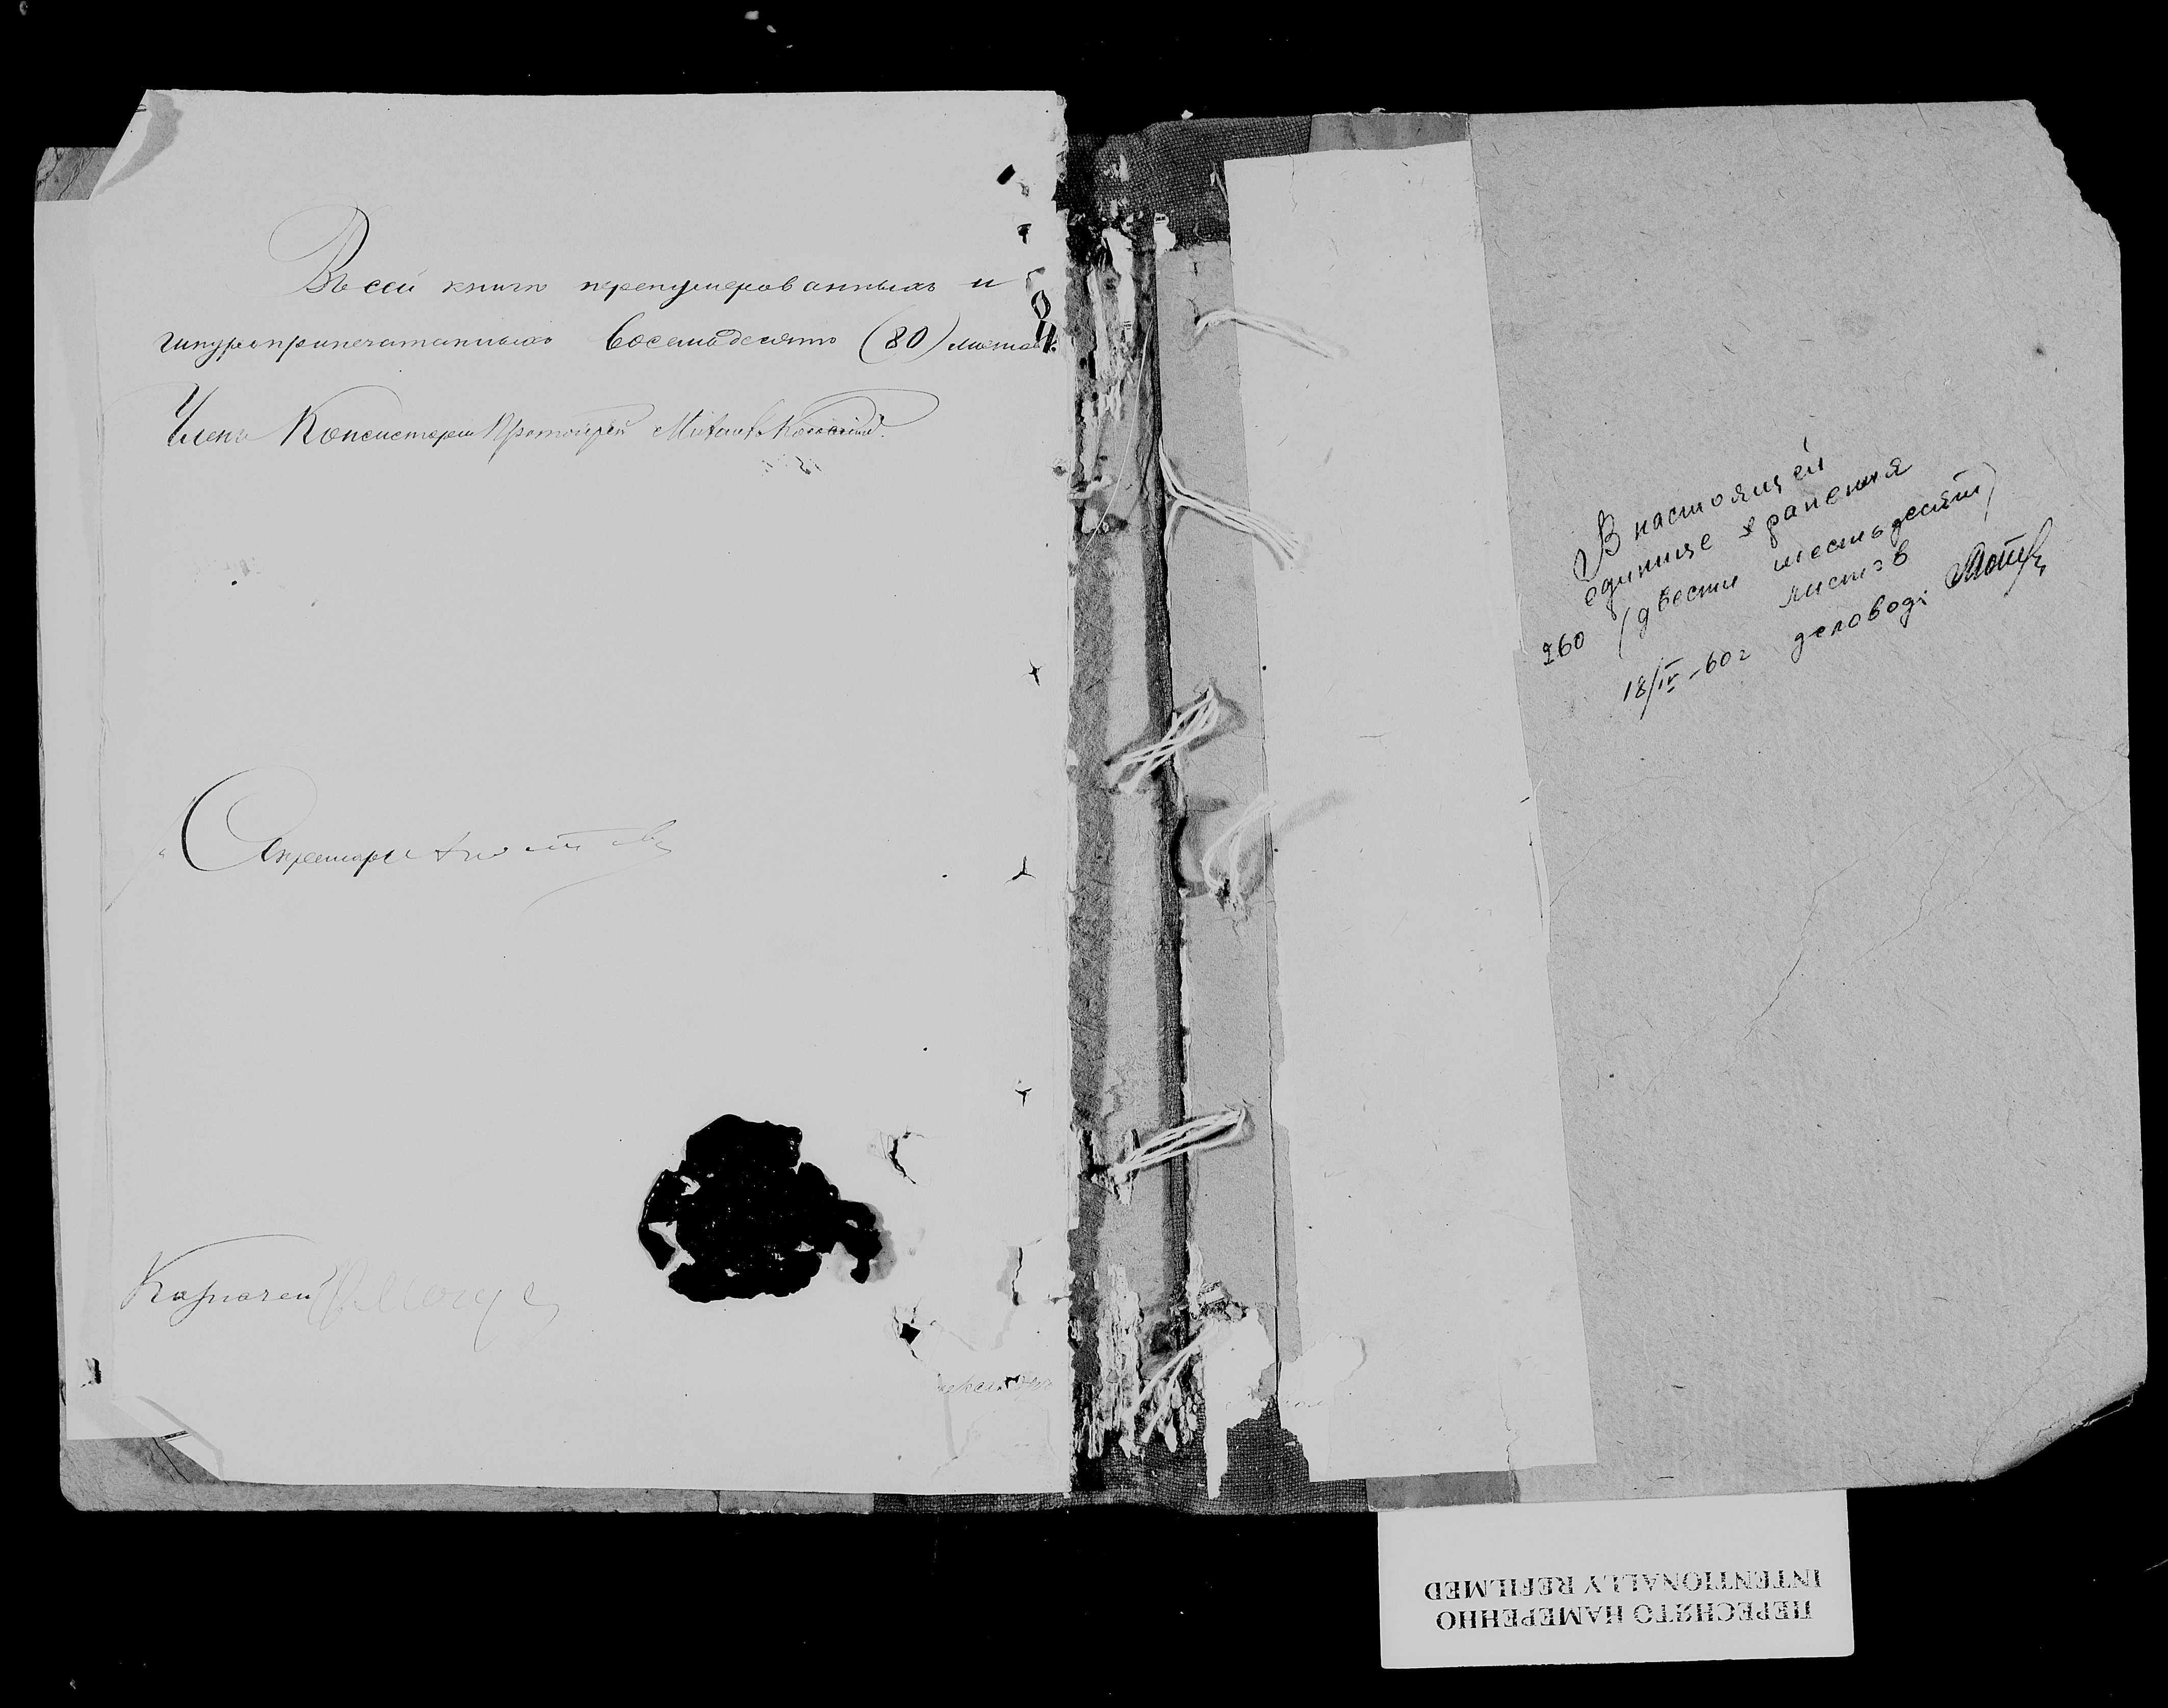 Въ сей книгѣ перенумерованныхъ и
шнуроприпечатанныхъ восемьдесятъ (80) листовъ.
Членъ Консисторіи Протоіерей Михаилъ
Секретарь
Казначей
В настоящей
единице хранения
260 (двести шестьдесят)
листов
18/IV-60г деловод:
ПЕРЕСНЯТО НАМЕРЕННО
INTENTIONALLY REFILMED